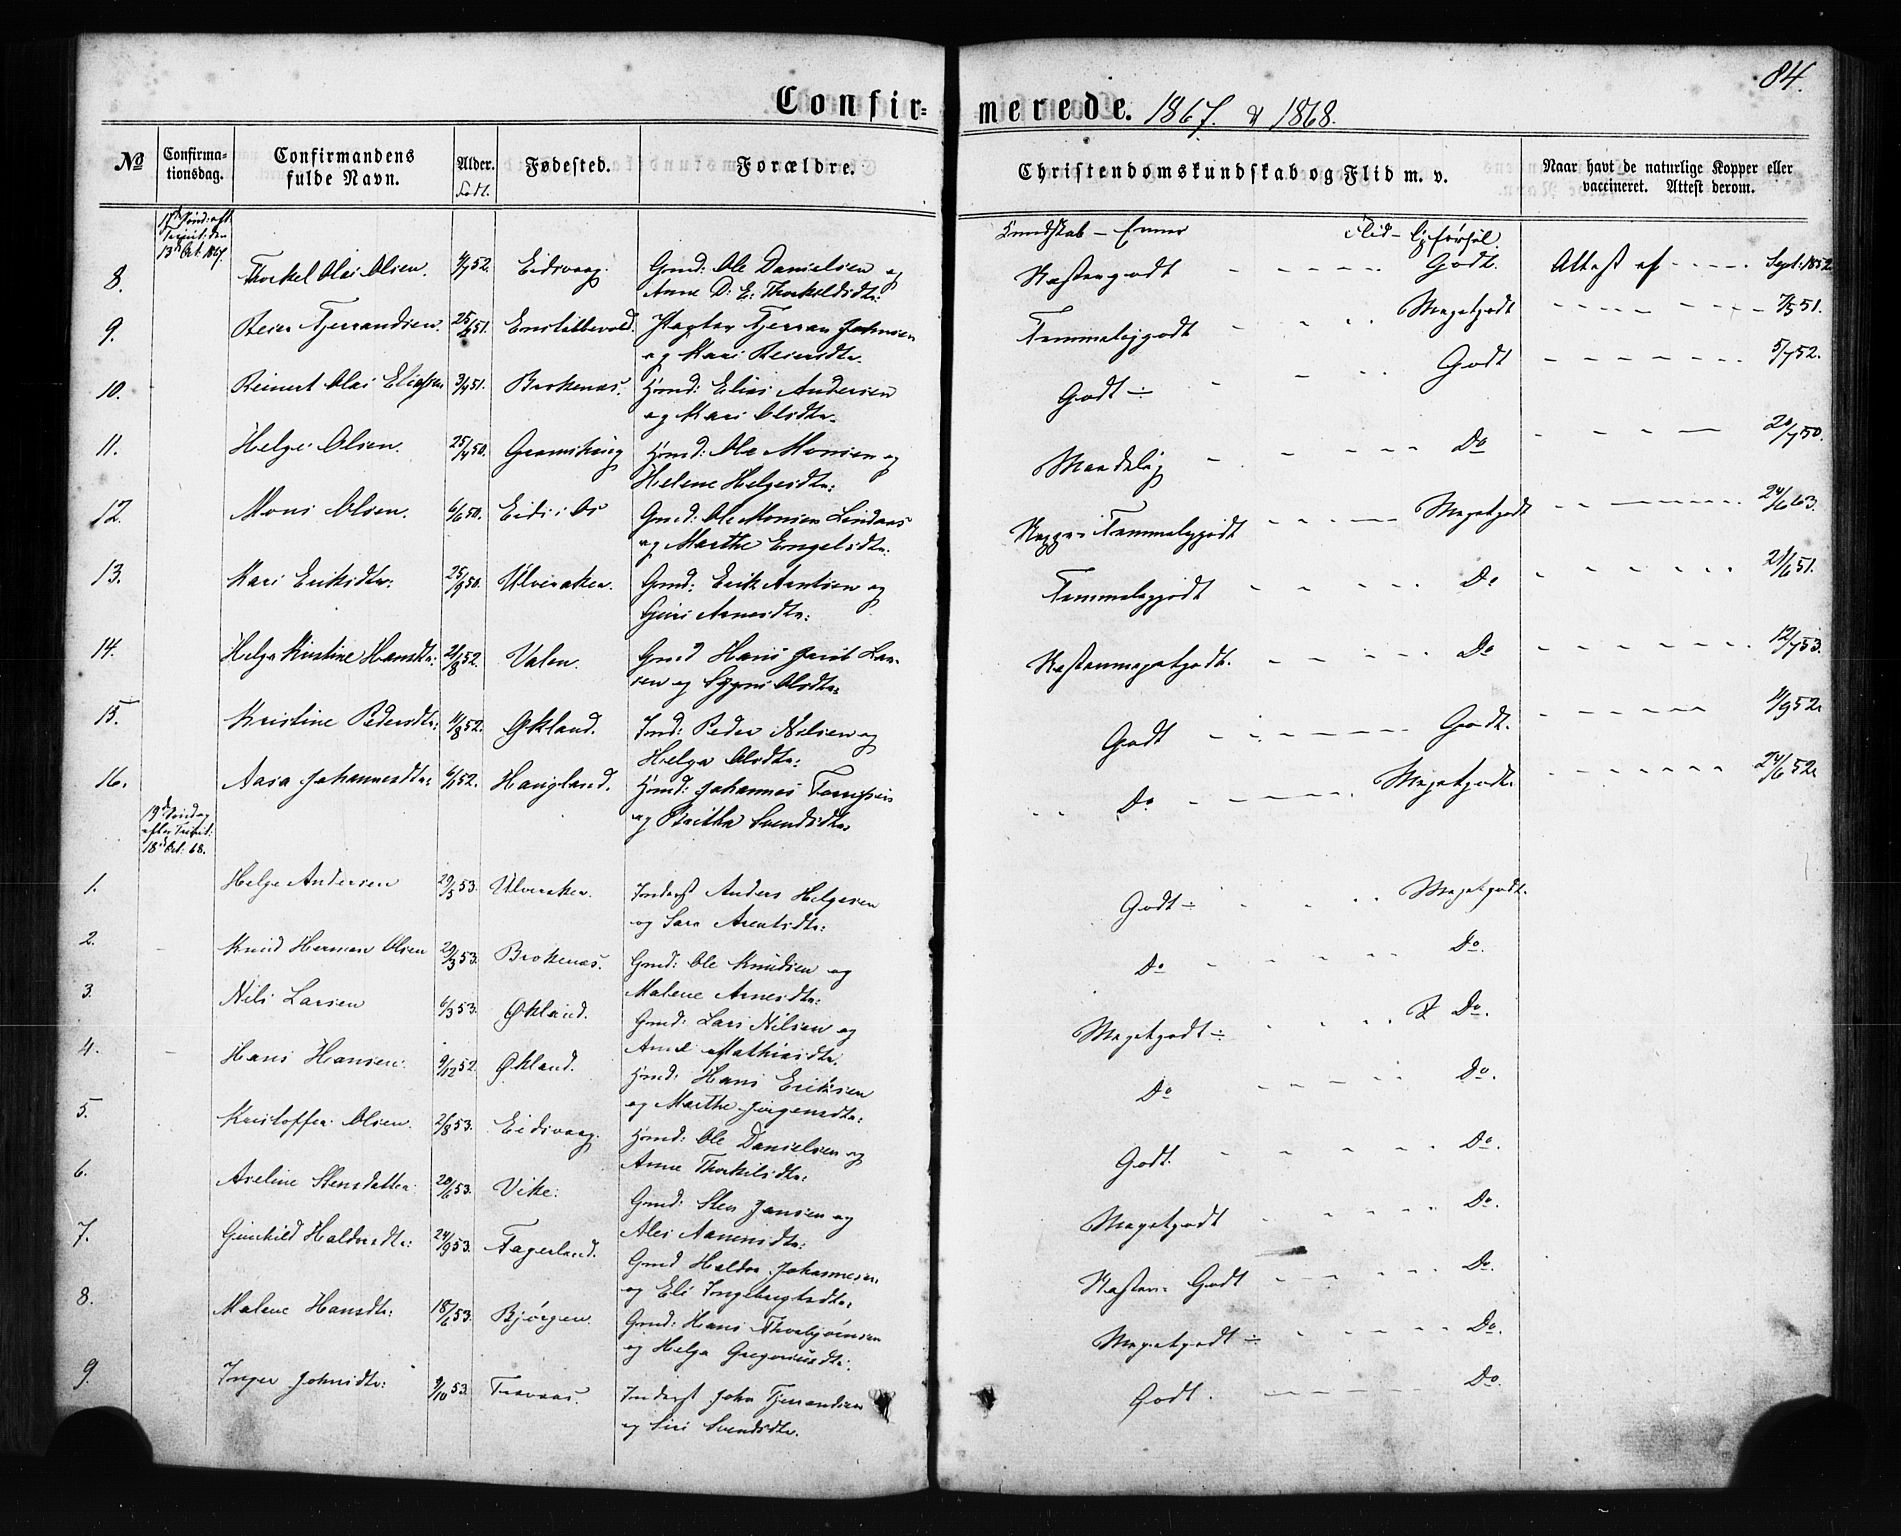 84.
Confirmerede. 1867. & 1868.
No
Confirmationsdag.
Confirmandens fulde Navn.
Alder.
Født.
Fødested.
Forældre.
Christendomskundskab og Flid m. v.
Naar havt de naturlige Kopper eller vaccineret. Attest derom.
17de Sønd: eft. Trinit: den 13de Oct. 1867.
Kundskab – Evner Flid – Opførsel.
8. Thorkel Olai Olsen. 4/7 52. Eidsvaag. Gmd: Ole Danielsen og
Anne D: E: Thorkeldsdtr:
Næstengodt Godt. Attest af Sept: 1852
9. Reier Tjerrandsen. 25/ 51. Tjerran Johnsen
og Mari Reiersdtr.
Temmeliggodt Megetgodt 7/5 51.
10. Reinert Olai Eliassen 3/4 51. Brokenæs. Hmd: Elias Andersen
og Mari Olsdtr.
Godt ÷ Godt 5/7 52.
11. Helge Olsen. 25/4 50. Hmd: Ole Monsen og
Helene Helgesdtr:
Maadelig Do 20/7 50.
12. Mons Olsen. 6/6 50. Eide i Os Gmd: Ole Monsen Lindaas
og Marthe Engelsdtr:
Neppe Temmeliggodt Megetgodt 24/6 63.
13. Kari Eriksdtr: 25/9 50. Ulveraker. Gmd: Erik Arntsen og
Guri Arnesdtr:
Temmeliggodt Do 21/6 51.
14. Helga Kirstine Hansdtr: 21/8 52. Valen. Gmd Hans Jacob Larsen
og Synni Olsdtr:
Næstenmegetgodt. Do 12/7 53.
15. Kristine Pedersdtr: 11/8 52. Økland. Inds: Peder Nilsen og
Helga Olsdtr:
Godt Godt. 11/9 52.
16. Aasa Johannesdtr: 6/1 52. Haugland. Hmd: Johannes
og Britha Svendsdtr:
Do Megetgodt. 24/6 52.
19de Søndag efter Trinit: 18de Oct: 68.
1. Helge Andersen 29/5 53. Ulveraker. Inderst Anders Helgesen
og Sara Arentsdtr:
Godt ÷ Megetgodt.
2. Knud Herman Olsen 29/3 53. Brokenæs. Gmd: Ole Knudsen og
Malene Arnesdtr:
Do Do.
3. Nils Larsen 6/3 53. Økland. Gmd: Lars Nilsen og
Anne Mathiasdtr.
Megetgodt ÷ Do.
4. Hans Hansen. 9/12 52. Økland. Hmd: Hans Eriksen
og Marthe Jørgensdtr:
Do Do.
5. Kristoffer Olsen. 2/8 53. Eidsvaag. Hmd: Ole Danielsen og
Anne Thorkilsdtr:
Godt. Do.
6. Aveline Stensdatter. 20/6 53. Vike. Gmd: Sten Jansen og
Ales Aamundsdtr:
Megetgodt Do.
7. Gunhild Haldorsdtr: 24/9 53. Fagerland. Gmd Haldor Johannesen
og Eli Ingebrigtsdtr:
Næsten Godt Do.
8. Malene Hansdtr: 18/6 53. Bjørgen. Gmd: Hans Thorbjørnsen
og Helga Gregoriusdtr:
Megetgodt ÷ Do.
9. Inger Johnsdtr: 9/10 53. Trovaas. Inderst John Tjerrandsen
og Siri Svendsdtr.
Godt. Do.